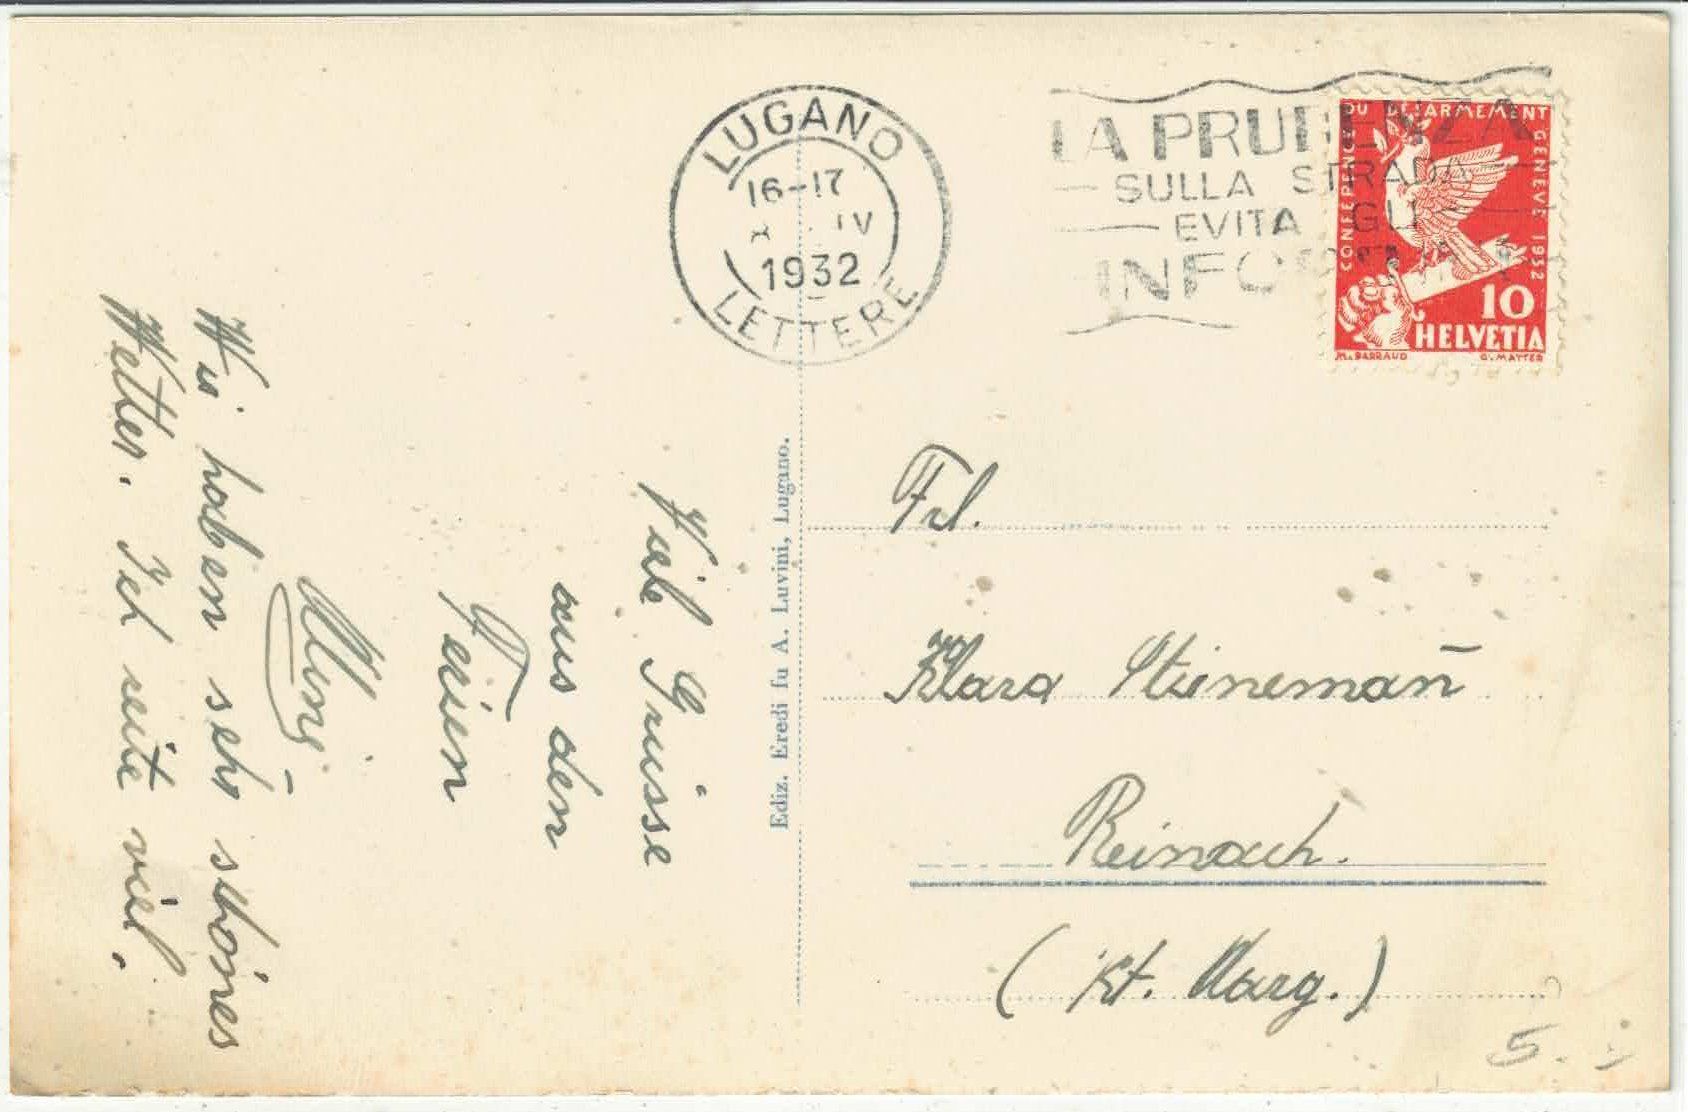 LUGANO
16-17
IV
1932
LETTERE
LA PRUDENZA
SULLA STRADA
EVITA GLI
INFORTUNI
CONFERENCE DU DESARMEMENT GENEVE 1932
10
HELVETIA
M. BARRAUD G. MATTER
Viele Grüsse
aus den
Ferien
Wir haben sehr schönes
Wetter. Ich reite viel.
Ediz. Eredi fu A. Luvini, Lugano.
Frl.
Klara Steinemañ
Reinach.
(Kt. Aarg.)
5.-